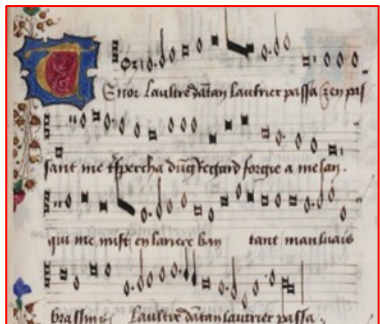 Tenor Laultre dãtan lautrier passa Et en pas
sant me tˢpercha dũg Regard forgie a melan.
qui me mist en lariere ban tant mauluais
brassin Laultre dãtan lautrier passa.